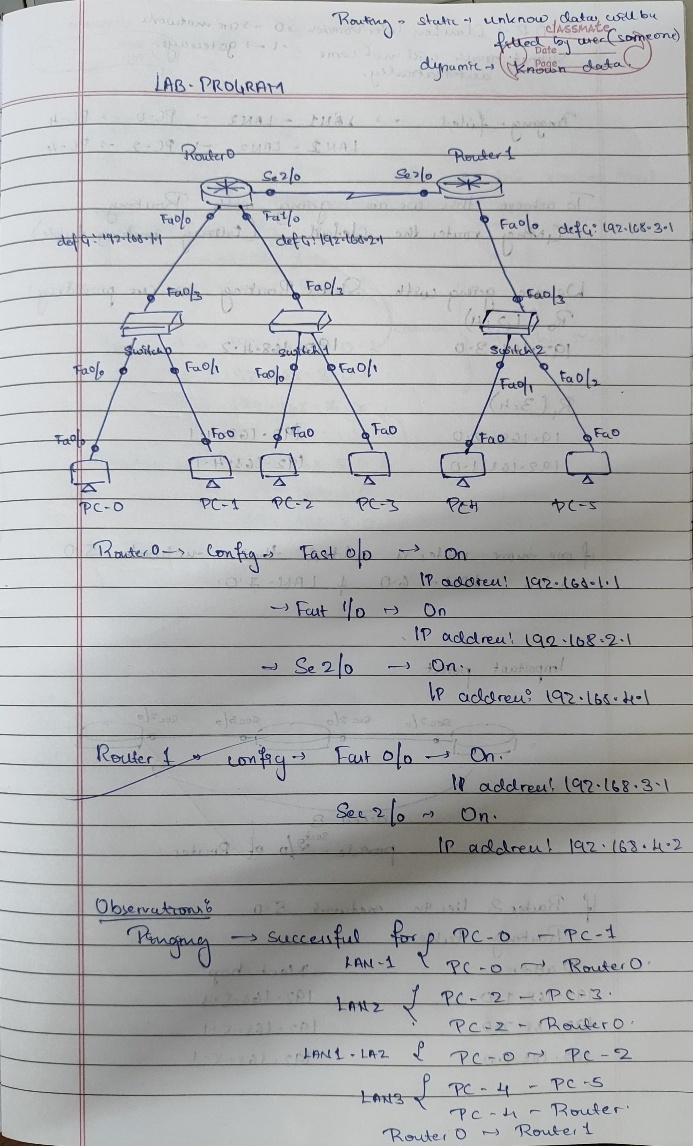 Routing → static → unknow data, will be
filled by user (someone)
classmate
Date
Page
dynamic → known data.
LAB-PROGRAM
Router0
Router 1
Se2/0
Se2/0
Fa0/0
Fa1/0
Fa0/0
defG: 192.168.1.1
defG: 192.168.2.1
defG: 192.168.3.1
Fa0/3
Fa0/3
Fa0/3
Switch0
Switch1
Switch2
Fa0/0
Fa0/1
Fa0/0
Fa0/1
Fa0/1
Fa0/2
Fa0/0
Fa0
Fa0
Fa0
Fa0
Fa0
PC-0
PC-1
PC-2
PC-3
PC4
PC-5
Router0 → Config → Fast 0/0 → On
IP address: 192.168.1.1
→ Fast 1/0 → On
IP address: 192.168.2.1
→ Se 2/0 → On.
IP address: 192.168.4.1
Router 1 → config → Fast 0/0 → On.
IP address: 192.168.3.1
Sec 2/0 → On.
IP address: 192.168.4.2
Observations:
Pinging → successful for { PC-0 - PC-1
LAN-1 { PC-0 → Router0.
LAN2 { PC-2 - PC-3.
PC-2 - Router0.
LAN1-LA2 { PC-0 → PC-2
LAN3 { PC-4 - PC-5
PC-4 - Router.
Router 0 → Router 1